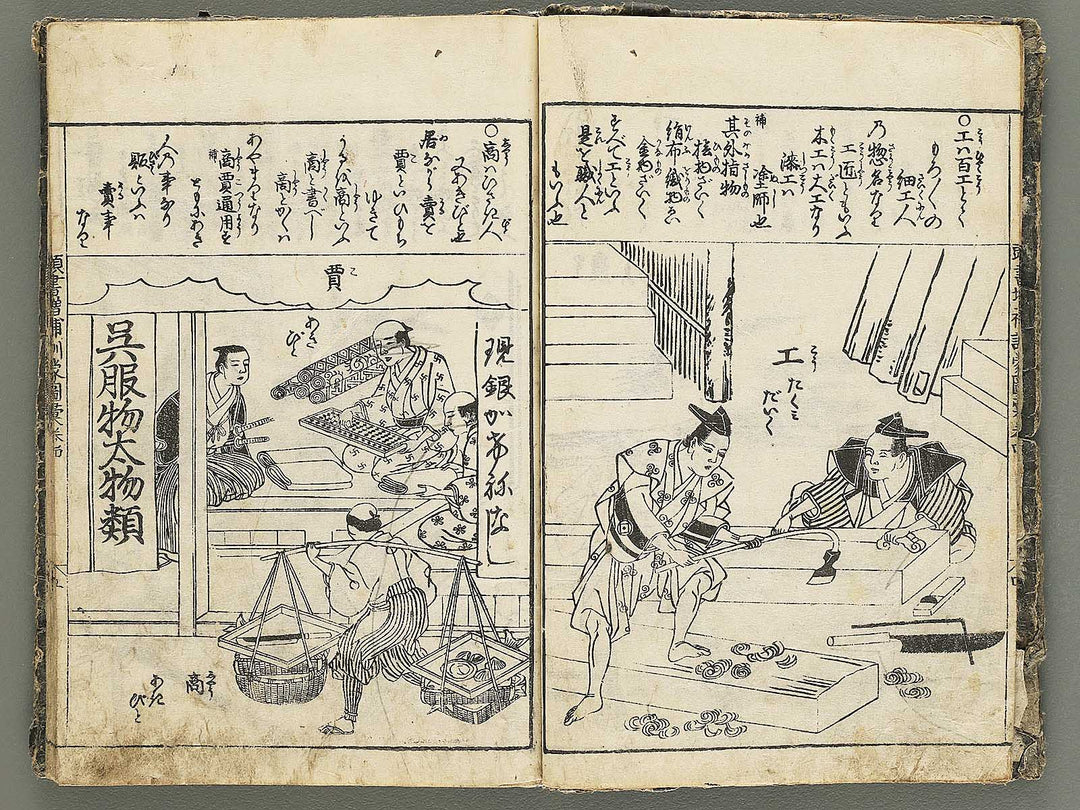 工ハ百工とて
もろ〱の
細工人
乃惣名なり
工匠ともいふ
木工ハ人工なり
漆工ハ
塗師也
補
其外指物
絹布織物
金物ざいく
すべて工といふ
是を職人と
もいふ也
工
たくミ
だいく
商ハひさぎ人
又あきびと也
居ながら賣を
賈といひもち
ゆきて
うるを商といふ
商と書べし
商とかくハ
あやまりなり
商賈通用す
ともにあき
人乃事なり
販ハ
賣事
なり
賈
あき
びと
現銀かけねなし
呉服物太物類
商
あき
びと
頭書増補訓蒙圖彙